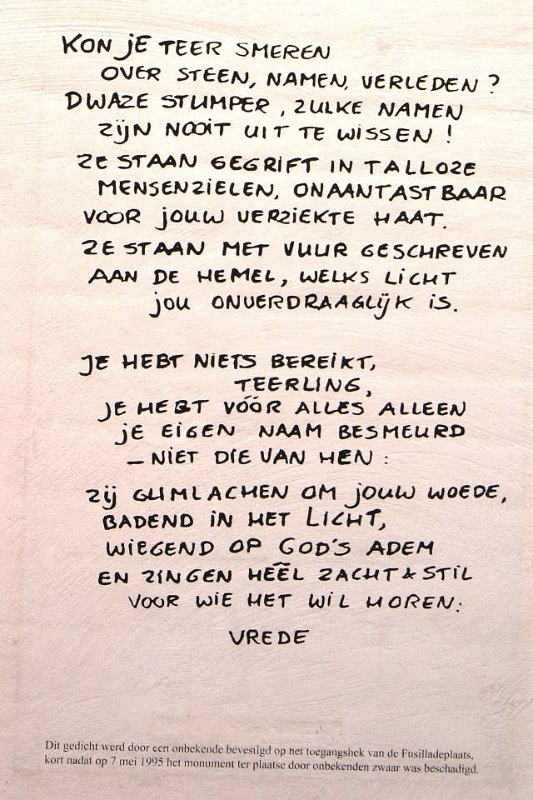 KON JE TEER SMEREN
OVER STEEN, NAMEN, VERLEDEN?
DWAZE STUMPER, ZULKE NAMEN
ZIJN NOOIT UIT TE WISSEN!
ZE STAAN GEGRIFT IN TALLOZE
MENSENZIELEN, ONAANTASTBAAR
VOOR JOUW VERZIEKTE HAAT.
ZE STAAN MET VUUR GESCHREVEN
AAN DE HEMEL, WELKS LICHT
JOU ONVERDRAAGLIJK IS.
JE HEBT NIETS BEREIKT,
TEERLING,
JE HEBT VÓÓR ALLES ALLEEN
JE EIGEN NAAM BESMEURD
– NIET DIE VAN HEN:
ZIJ GLIMLACHEN OM JOUW WOEDE,
BADEND IN HET LICHT,
WIEGEND OP GOD'S ADEM
EN ZINGEN HÉÉL ZACHT & STIL
VOOR WIE HET WIL HOREN:
VREDE
Dit gedicht werd door een onbekende bevestigd op het toegangshek van de Fusilladeplaats,
kort nadat op 7 mei 1995 het monument ter plaatse door onbekenden zwaar was beschadigd.